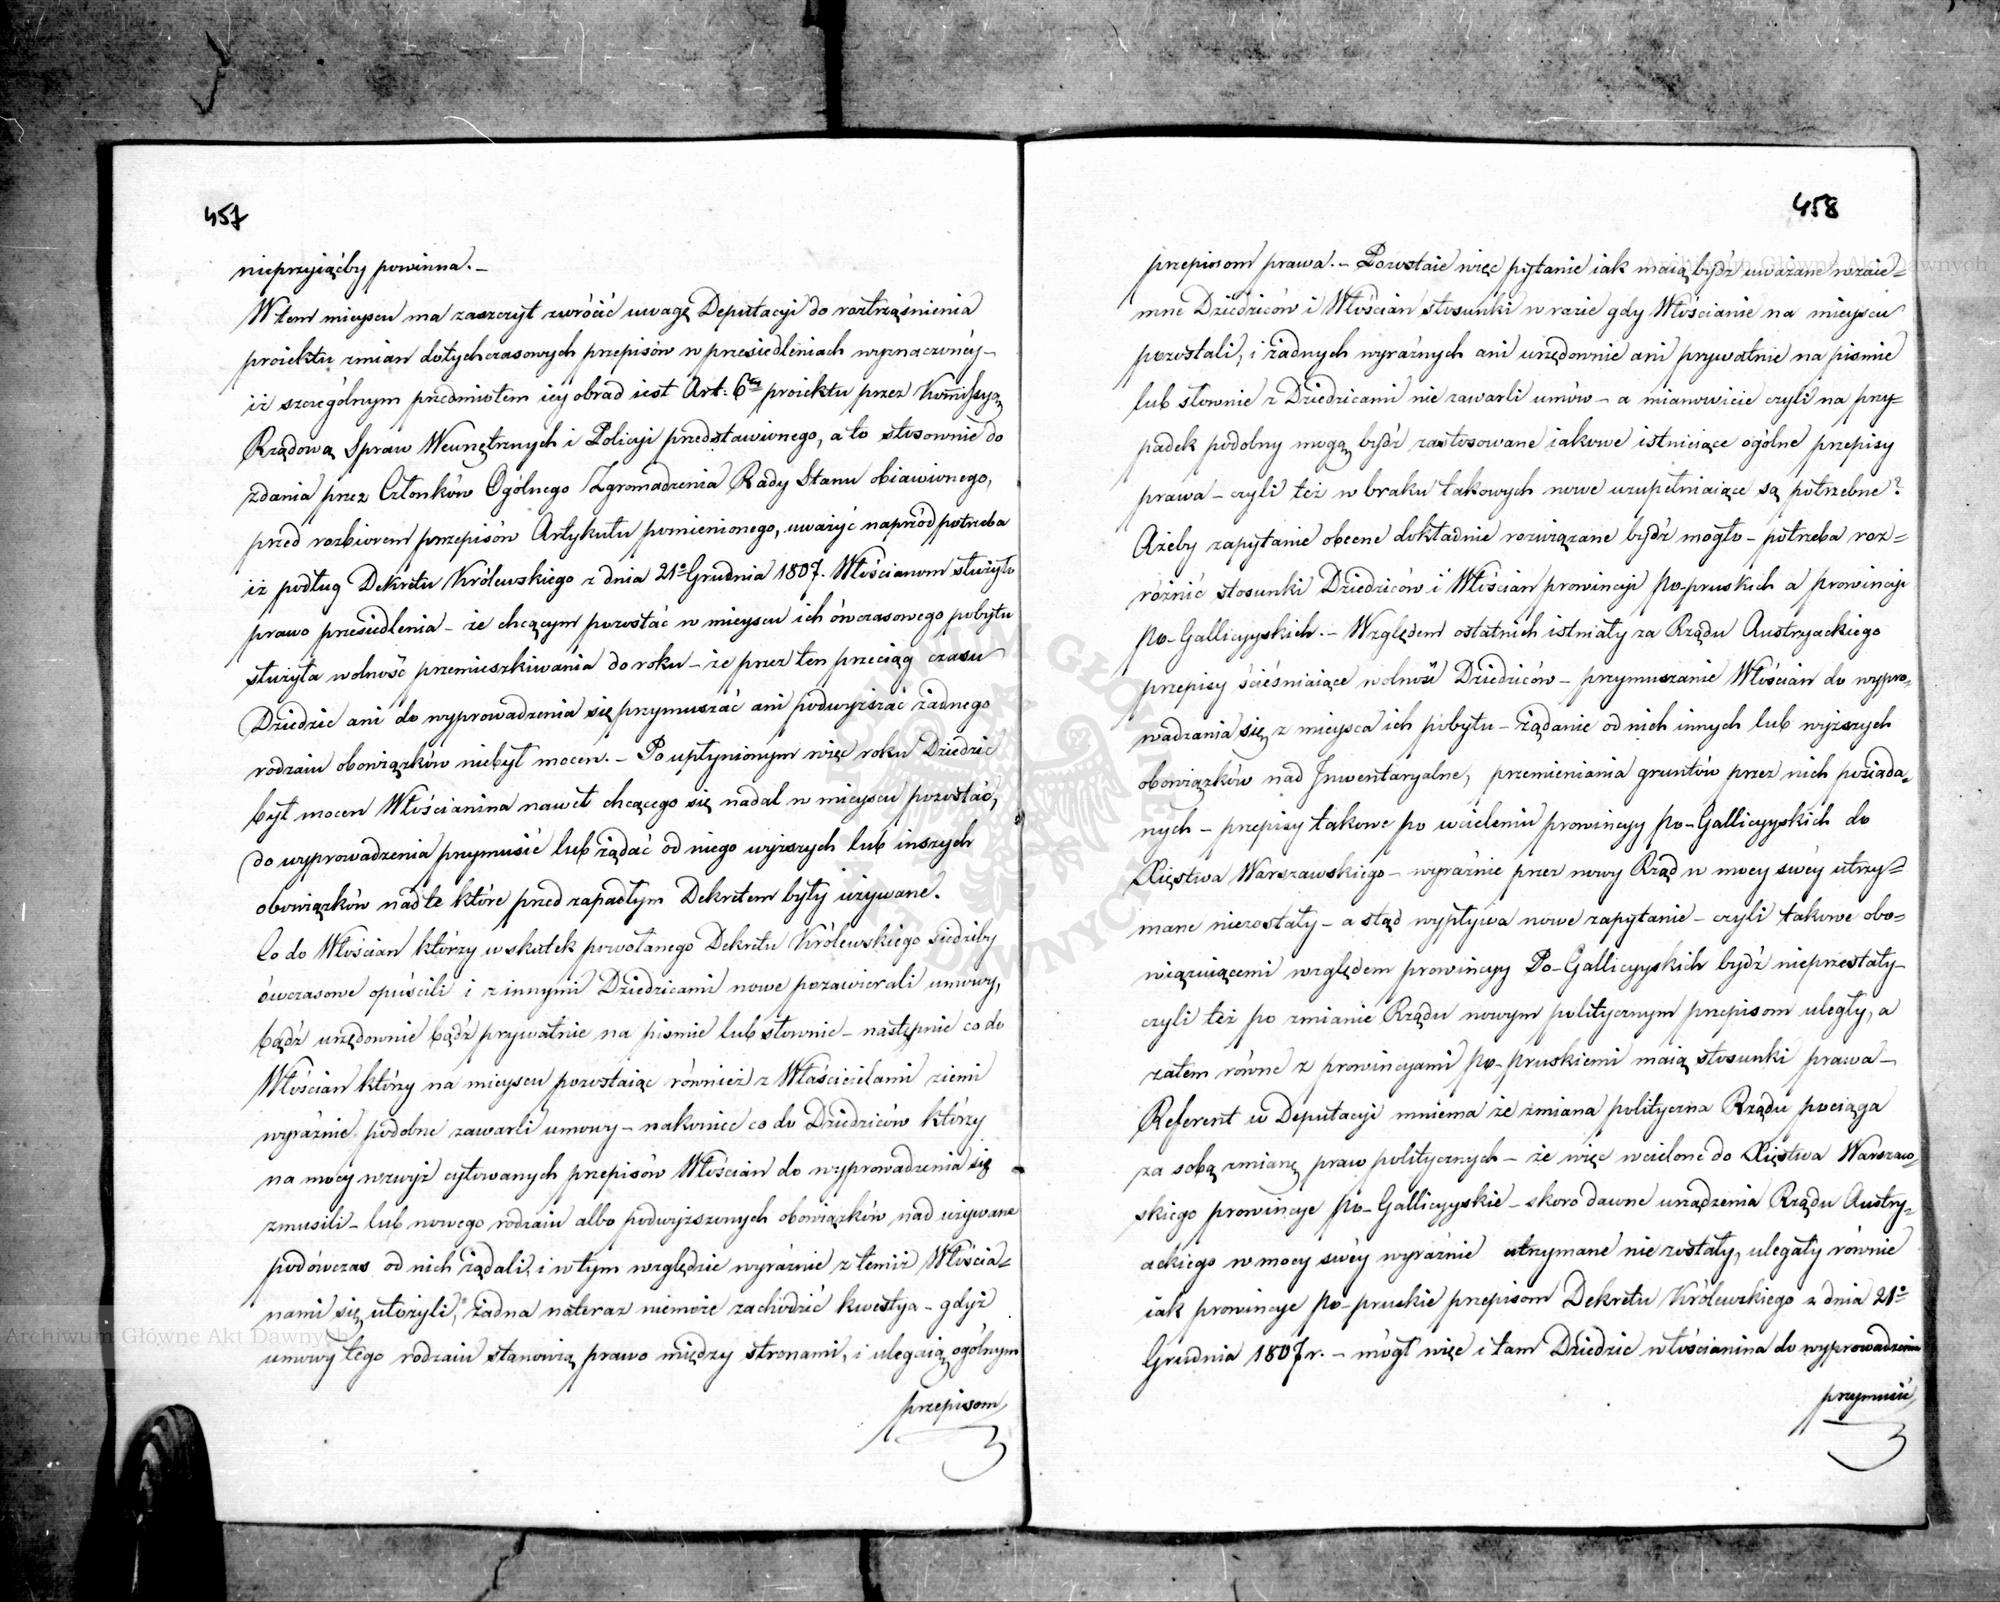 457
nieprzyiąćby powinna. –
W tem mieyscu ma zaszczyt zwrócić uwagę Deputacyi do roztrząśnienia
proiektu zmian dotychczasowych przepisów w przesiedleniach wyznaczonéy –
iż szczególnym przedmiotem iéy obrad iest Art: 6ty proiektu przez Kom̃issyą
Rządową Spraw Wewnętrznych i Policyi przedstawionego, a to stosownie do
zdania przez Członków Ogólnego Zgromadzenia Rady Stanu obiawionego,
przed rozbiorem przepisów Artykułu pomienionego, uważyć naprzód potrzeba
iż podług Dekretu Królewskiego z dnia 21o Grudnia 1807. Włościanom służyło
prawo przesiedlenia – że chcącym pozostać w mieyscu ich ówczasowego pobytu
służyła wolność przemieszkiwania do roku – że przez ten przeciąg czasu
Dziedzic ani do wyprowadzenia się przymuszać ani podwyższać żadnego
rodzaiu obowiązków niebył mocen. – Po upłynionym więc roku Dziedzic
był mocen Włościanina nawet chcącego się nadal w mieyscu pozostać,
do wyprowadzenia przymusić lub żądać od niego wyższych lub inszych
obowiązków nad te które przed zapadłym Dekretem były używane.
Co do Włościan którzy w skutek powołanego Dekretu Królewskiego siedziby
ówczasowe opuścili i z innymi Dziedzicami nowe pozawierali umowy,
bądź urzędownie bądź prywatnie na pismie lub słownie – następnie co do
Włościan którzy na mieyscu pozostaiąc również z Właścicielami ziemi
wyraźnie podobne zawarli umowy – nakoniec co do Dziedziców którzy
na mocy wzwyż cytowanych przepisów Włościan do wyprowadzenia się
zmusili – lub nowego rodzaiu albo podwyższonych obowiązków nad używane
podówczas od nich żądali, i w tym względzie wyraźnie z temiż Włościa=
nami się ułożyli, żadna nateraz niemoże zachodzić kwestya – gdyż
umowy tego rodzaiu stanowią prawo między stronami, i ulegaią ogólnym
przepisom
458
przepisom prawa. – Pozostaie więc pytanie iak maią bydź uważane wzaie=
mne Dziedziców i Włościan stosunki w razie gdy Włościanie na mieyscu
pozostali, i żadnych wyraźnych ani urzędownie ani prywatnie na pismie
lub słownie z Dziedzicami nie zawarli umów – a mianowicie czyli na przy=
padek podobny mogą bydź zastosowane iakowe istnieiące ogólne przepisy
prawa – czyli też w braku takowych nowe uzupełniaiące są potrzebne?
Ażeby zapytanie obecne dokładnie rozwiązane bydź mogło – potrzeba roz=
różnić stosunki Dziedziców i Włościan prowincyi po-pruskich a prowincyi
po-Gallicyyskich. – Względem ostatnich istniały za Rządu Austryackiego
przepisy ścieśniaiące wolność Dziedziców – przymuszanie Włościan do wypro=
wadzania się z mieysca ich pobytu – żądanie od nich innych lub wyższych
obowiązków nad Inwentaryalne, przemieniania gruntów przez nich posiada=
nych – przepisy takowe po wcieleniu prowincyy po-Gallicyyskich do
Xięstwa Warszawskiego – wyraźnie przez nowy Rząd w mocy swéy utrzy=
mane niezostały – a stąd wypływa nowe zapytanie – czyli takowe obo=
wiązuiącemi względem prowincyy Po-Gallicyyskich bydź nieprzestały –
czyli też po zmianie Rządu nowym politycznym przepisom uległy, a
zatem równe z prowincyami po-pruskiemi maią stosunki prawa –
Referent w Deputacyi mniema że zmiana polityczna Rządu pociąga
za sobą zmianę praw politycznych – że więc wcielone do Xięstwa Warszaw=
skiego prowincye po-Gallicyyskie – skoro dawne urządzenia Rządu Austry=
ackiego w mocy swéy wyraźnie utrzymane nie zostały, ulegały równie
iak prowincye po-pruskie przepisom Dekretu Królewskiego z dnia 21o
Grudnia 1807 r. – mógł więc i tam Dziedzic włościanina do wyprowadzenia
przymusić
Archiwum Główne Akt Dawnych
Archiwum Główne Akt Dawnych
ARCHIWUM GŁÓWNE AKT DAWNYCH